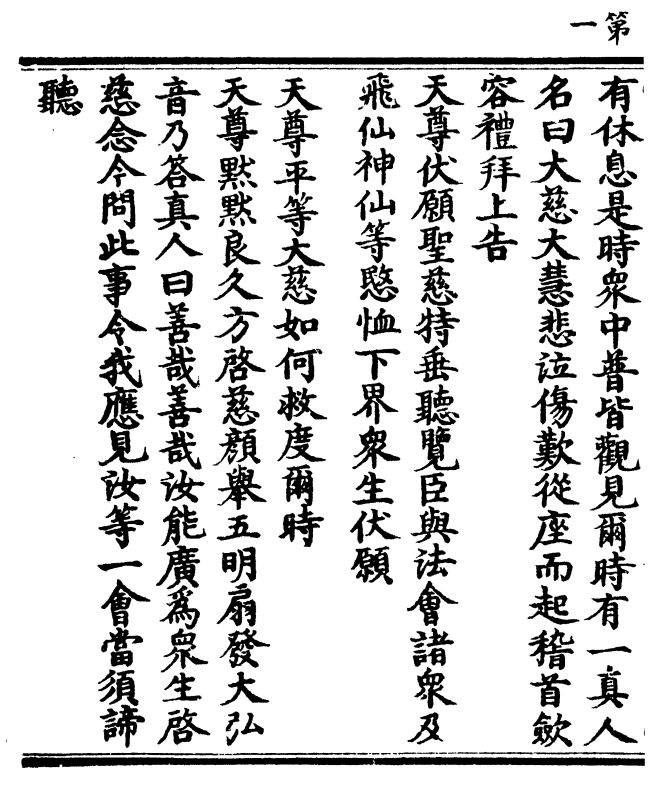 第一
有休息是時衆中普皆觀見爾時有一真人
名曰大慈大慧悲泣傷歎從座而起稽首斂
容禮拜上告
天尊伏願聖慈特垂聽覽臣與法會諸衆及
飛仙神仙等愍恤下界衆生伏願
天尊平等大慈如何救度爾時
天尊默默良久方啓慈顔舉五明扇發大弘
音乃答真人曰善哉善哉汝能廣爲衆生啓
慈念今問此事令我應見汝等一會當須諦
聽